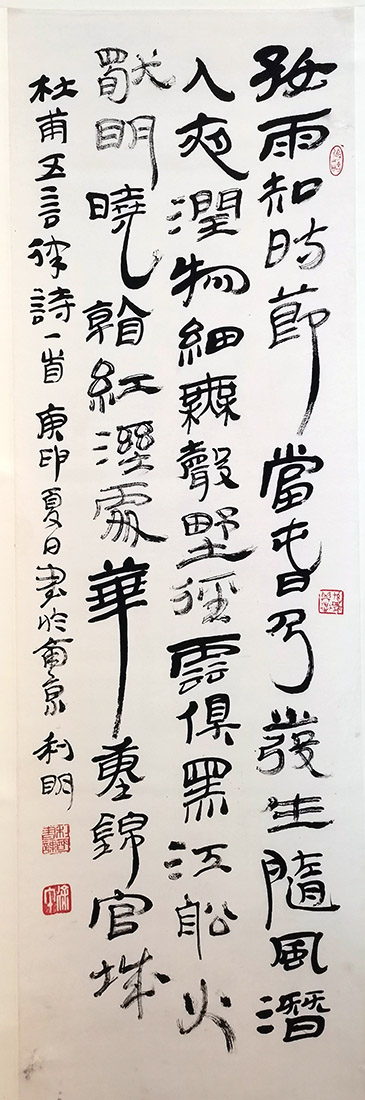 好雨知時節當旾乃發生隨風潛
入夜潤物細無聲野徑雲俱黑江舩火
獨明曉看紅溼處華重錦官城
杜甫五言律詩一首 庚夏日書於南京 利明